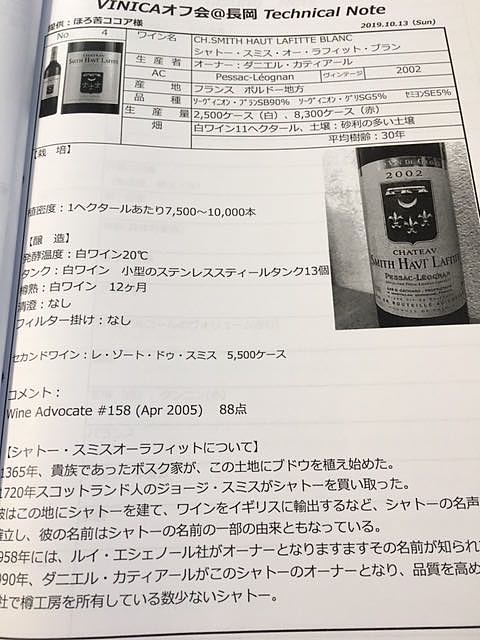 VINICAオフ会@長岡 Technical Note
提供：ほろ苦ココア様
2019.10.13（Sun）
No 4
ワイン名 CH.SMITH HAUT LAFITTE BLANC
シャトー・スミス・オー・ラフィット・ブラン
生産者 オーナー：ダニエル・カティアール
AC Pessac-Léognan ヴィンテージ 2002
産地 フランス ボルドー地方
品種 ソーヴィニオン・ブランSB90% ソーヴィニオン・グリSG5% セミヨンSE5%
生産量 2,500ケース（白）、8,300ケース（赤）
畑 白ワイン11ヘクタール、土壌：砂利の多い土壌
平均樹齢：30年
【栽　培】
植密度：1ヘクタールあたり7,500～10,000本
【醸　造】
発酵温度：白ワイン20℃
タンク：白ワイン 小型のステンレススティールタンク13個
樽熟：白ワイン 12ヶ月
清澄：なし
フィルター掛け：なし
セカンドワイン：レ・ゾート・ドゥ・スミス 5,500ケース
コメント：
Wine Advocate #158 (Apr 2005) 88点
2002
CHATEAU
SMITH HAUT LAFITTE
PESSAC-LÉOGNAN
【シャトー・スミスオーラフィットについて】
1365年、貴族であったボスク家が、この土地にブドウを植え始めた。
1720年スコットランド人のジョージ・スミスがシャトーを買い取った。
彼はこの地にシャトーを建て、ワインをイギリスに輸出するなど、シャトーの名声
確立し、彼の名前はシャトーの名前の一部の由来ともなっている。
1958年には、ルイ・エシェノール社がオーナーとなりますますその名前が知られ
990年、ダニエル・カティアールがこのシャトーのオーナーとなり、品質を高め
社で樽工房を所有している数少ないシャトー。